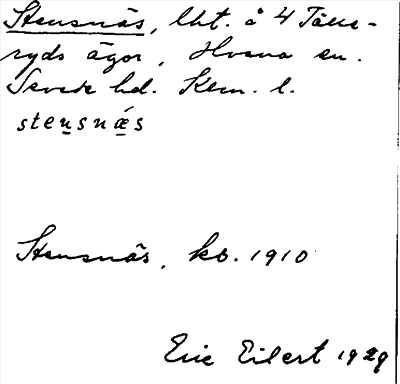 Stensnäs, lht. å 4 Tålle-
ryds ägor, Hvena sn.
Sevede hd. Klm. l.
stens̱nǽ̱s
Stensnäs, kb. 1910
Eric Eilert 1929